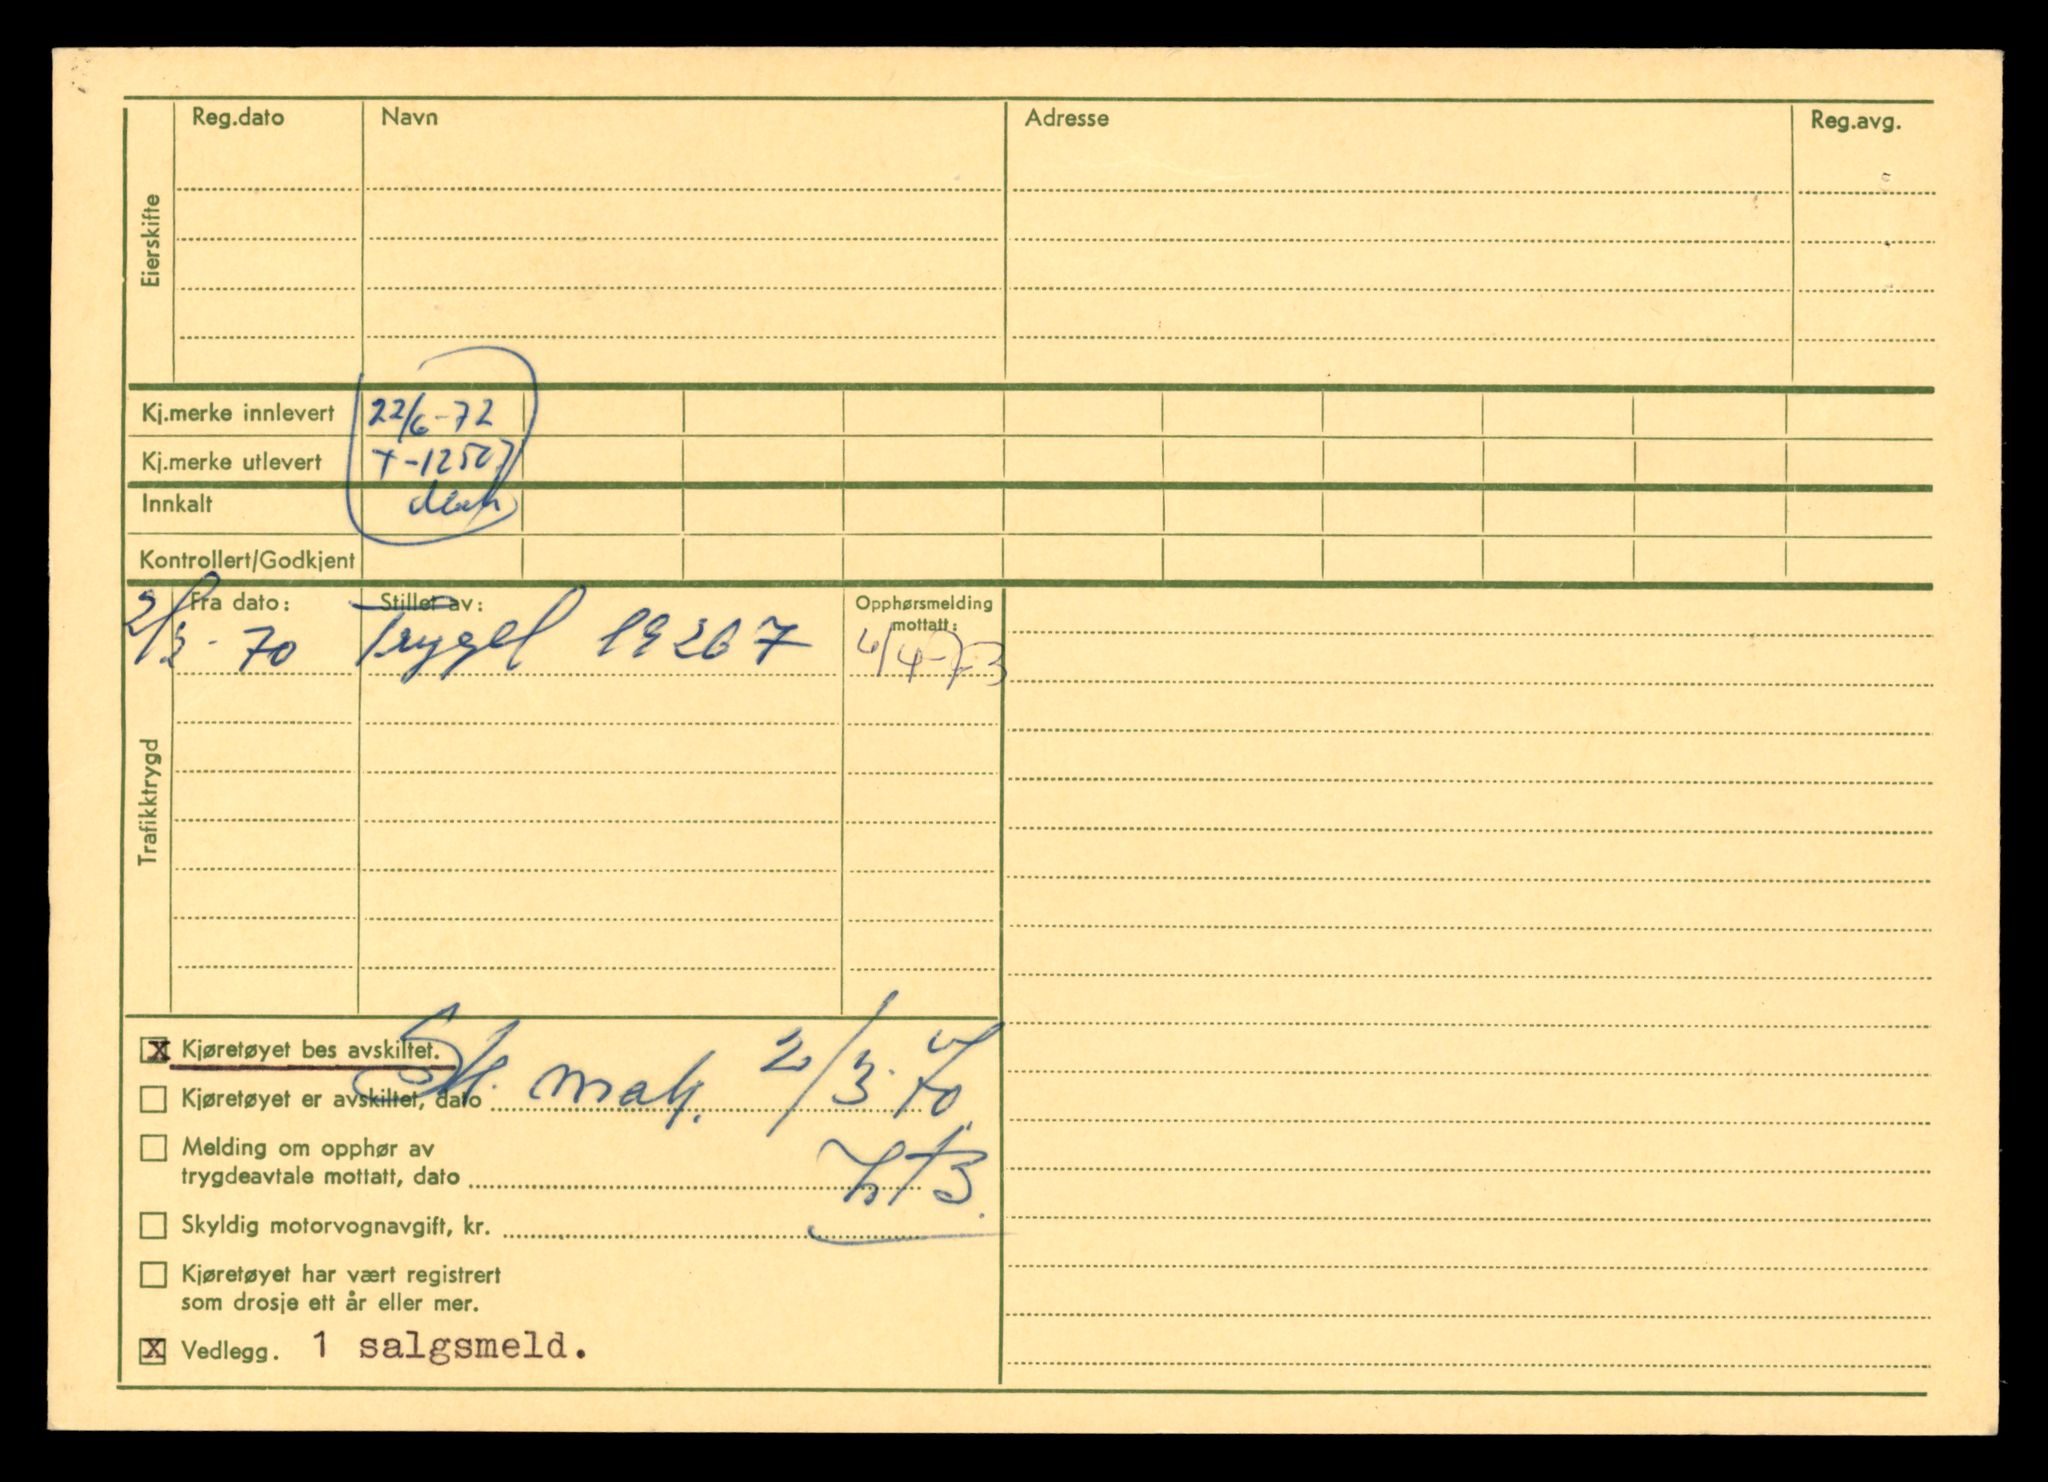 Reg.dato Navn Adresse Reg.avg.
Eierskifte
Kj.merke innlevert 22/6-72
Kj.merke utlevert T-12507
Innkalt
Kontrollert/Godkjent
Trafikktrygd
Fra dato: Stillet av: Opphørsmelding mottatt:
2/3-70 Trygel 19267 4/4-73
X Kjøretøyet bes avskiltet.
Sk. mak. 2/3-70
Kjøretøyet er avskiltet, dato
Melding om opphør av
trygdeavtale mottatt, dato
Skyldig motorvognavgift, kr.
Kjøretøyet har vært registrert
som drosje ett år eller mer.
X Vedlegg. 1 salgsmeld.